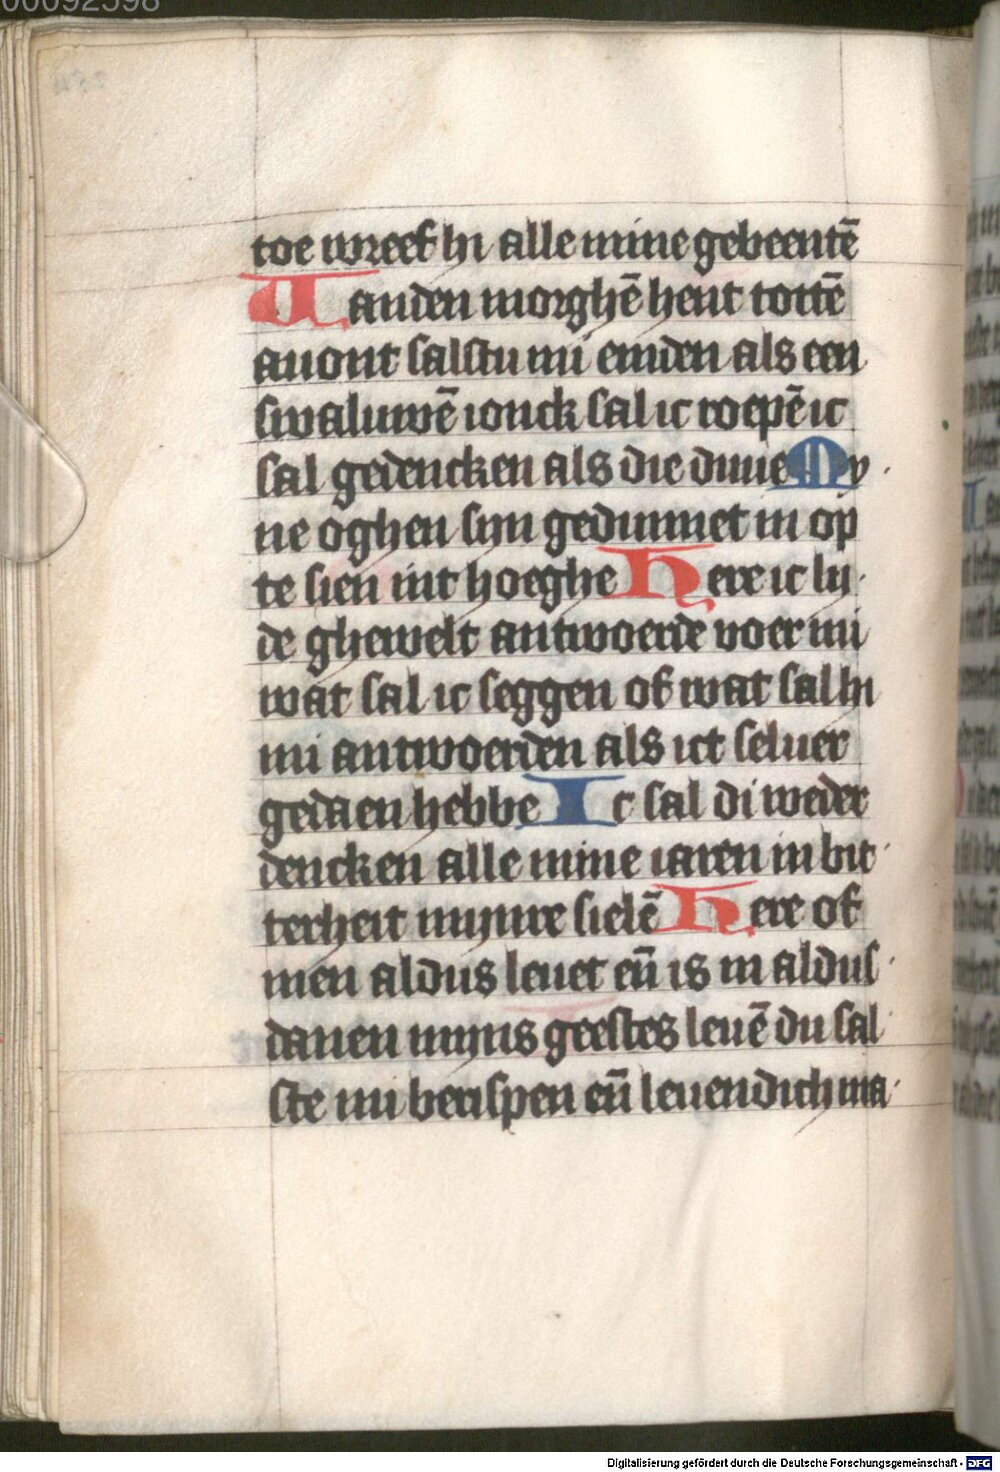 00092598
toe wreef hi alle mine gebeentē
Uanden morghē hent tottē
auont salstu mi einden als een
swaluwē ionck sal ic roepē ic
sal gedencken als die duue My
ne oghen sijn gedunnet in op
te sien int hoeghe Here ic lij
de ghewelt antwoerde voer mi
wat sal ic seggen of wat sal hi
mi antwoerden als ict seluer
gedaen hebbe Ic sal di weder
dencken alle mine iaren in bit
terheit mijnre sielē Here of
men aldus leuet eñ is in aldus
danen mijns geestes leuē du sal
ste mi berispen eñ leuendich ma
Digitalisierung gefördert durch die Deutsche Forschungsgemeinschaft - DFG